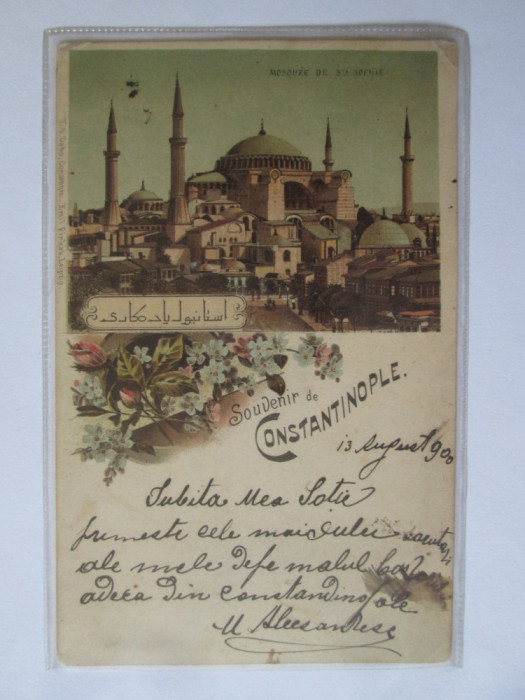 MOSQUÉE DE Ste SOPHIE
استانبول يادكارى
Souvenir de
CONSTANTINOPLE.
13 August 900
Iubita Mea Soție
primeste cele mai dulci sarutari
ale mele depe malul
adeca din constandinopole
M Alecsandrescu